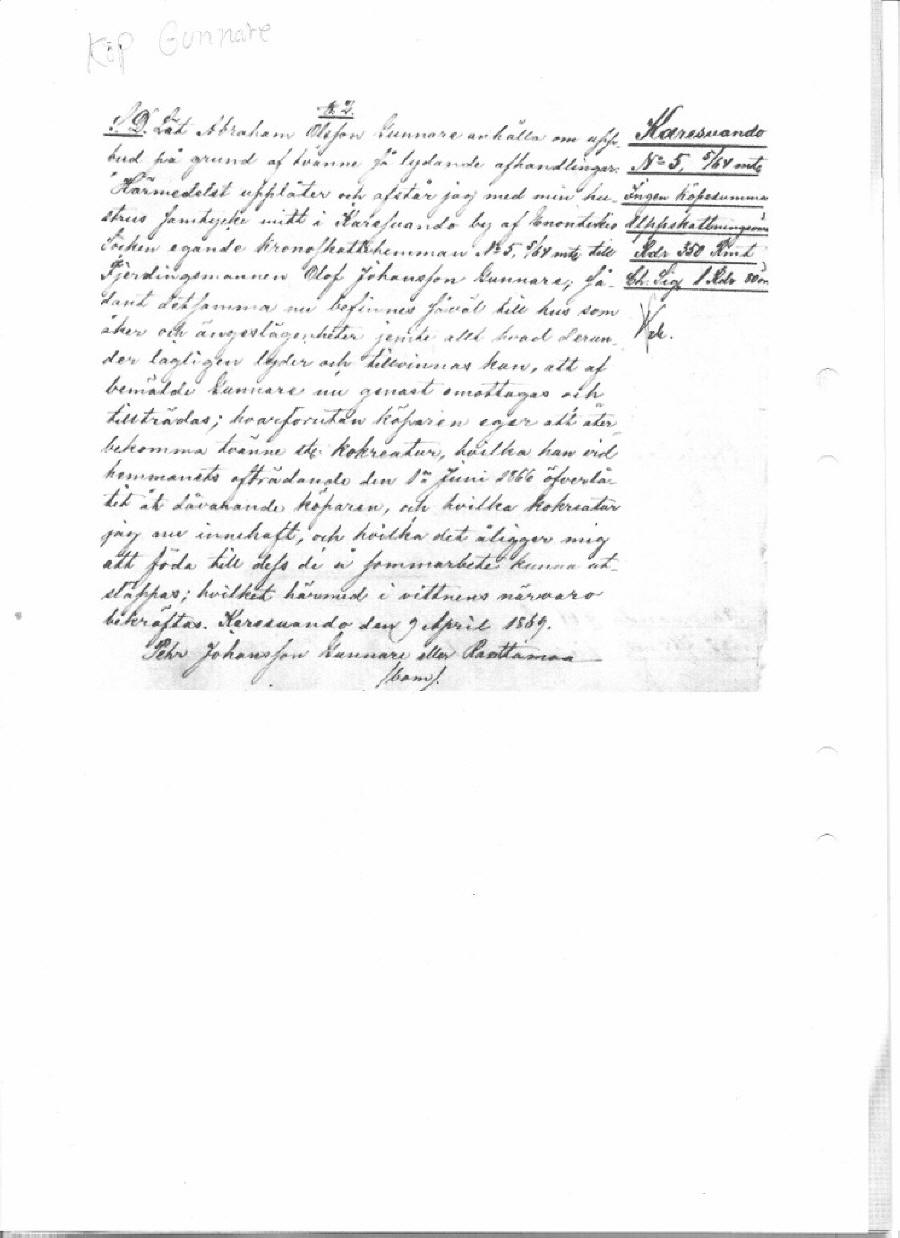 Köp Gunnare
№ 2.
S. D. Lät Abraham Olsson Gunnare anhålla om upp-
bud på grund af tvänne så lydande afhandlingar:
"Härmedelst uppläter och afstår jag med min hu-
strus samtycke mitt i Karesuando by af Enontekis
Socken egande kronoskattehemman № 5, 5/64 mtl till
Fjerdingsmannen Olof Johansson Gunnare, så-
dant detsamma nu befinnes såväl till hus som
åker och ängslägenheter jemte allt hvad derun-
der lagligen lyder och tillvinnas kan, att af
bemälde Gunnare nu genast emottagas och
tillträdas; hvarforutan köparen eger att åter-
bekomma tvänne st: kokreatur, hvilka han vid
hemmanets afträdande den 1a Juni 1866 öfverlå-
tit åt dåvarande köparen, och hvilka kokreatur
jag nu innehaft, och hvilka det åligger mig
att föda till dess de å sommarbete kunna ut-
släppas; hvilket härmed i vittnens närvaro
bekräftas. Karesuando den 9 April 1869.
Pehr Johansson Gunnare eller Raattamaa
/bom/.
Karesuando
№ 5, 5/64 mtl
Ingen köpesumma
Uppskattningsvärde
Rdr 350 Rmt
Ch. Sig. 1 Rdr 80 ör